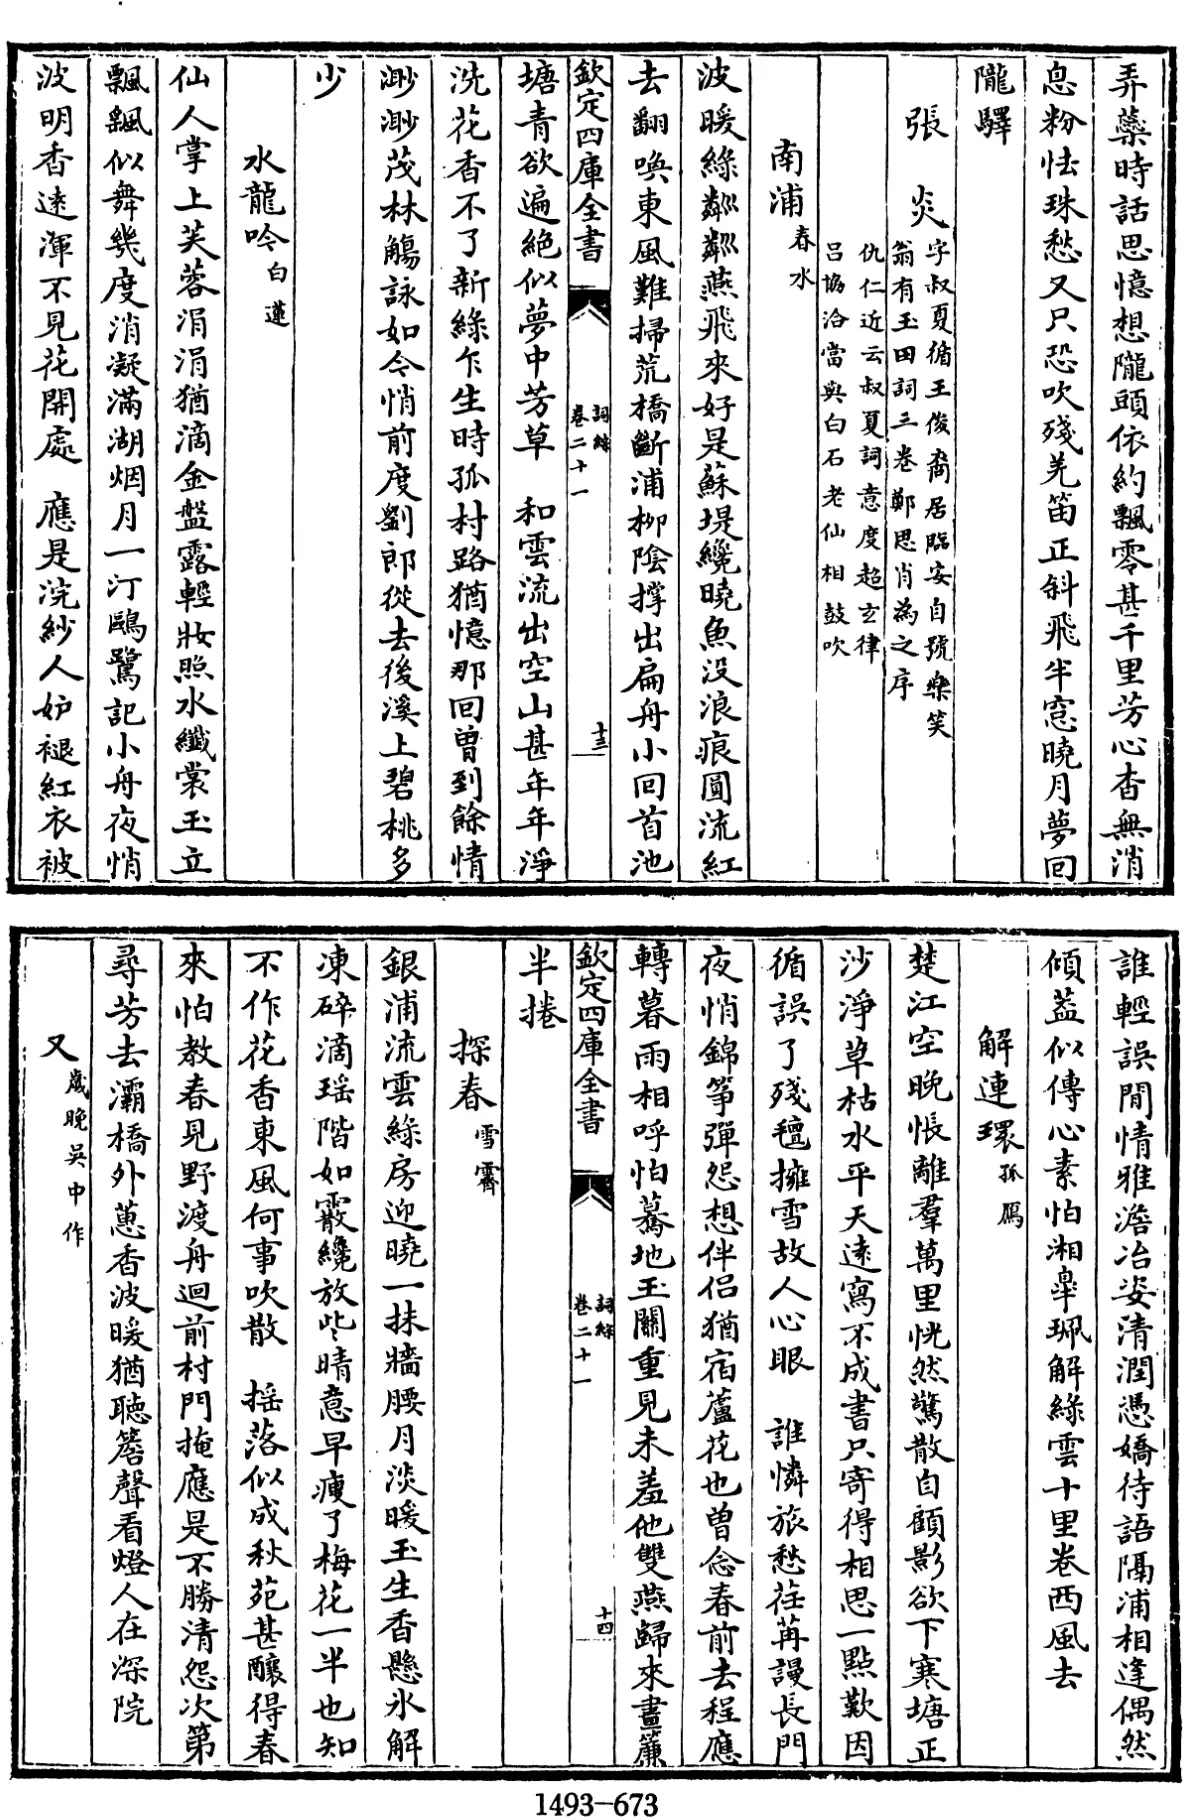 弄蘂時話思憶想隴頭依約飄零甚千里芳心杳無消
息粉怯珠愁又只恐吹殘羌笛正斜飛半窓曉月夢回
隴驛
張　炎
字叔夏循王俊裔居臨安自號樂笑
翁有玉田詞三卷鄭思肖為之序
仇仁近云叔夏詞意度超玄律
吕協洽當與白石老仙相鼓吹
南浦 春水
波暖綠粼粼燕飛來好是蘇堤纔曉魚沒浪痕圓流紅
去翻喚東風難掃荒橋斷浦柳陰撑出扁舟小回首池
欽定四庫全書
詞綜
卷二十一
十三
塘青欲遍絕似夢中芳草　和雲流出空山甚年年淨
洗花香不了新綠乍生時孤村路猶憶那回曽到餘情
渺渺茂林觴詠如今悄前度劉郎從去後溪上碧桃多
少
水龍吟 白蓮
仙人掌上芙蓉涓涓猶滴金盤露輕妝照水纖裳玉立
飄飄似舞幾度消凝滿湖烟月一汀鷗鷺記小舟夜悄
波明香逺渾不見花開處　應是浣紗人妒褪紅衣被
誰輕誤閒情雅澹冶姿清潤憑嬌待語隔浦相逢偶然
傾葢似傳心素怕湘皐珮解綠雲十里卷西風去
解連環 孤鴈
楚江空晚悵離羣萬里恍然驚散自顧影欲下寒塘正
沙淨草枯水平天逺寫不成書只寄得相思一點歎因
循誤了殘氊擁雪故人心眼　誰憐旅愁荏苒謾長門
夜悄錦筝彈怨想伴侶猶宿蘆花也曽念春前去程應
轉暮雨相呼怕驀地玉關重見未羞他雙燕歸來畫簾
欽定四庫全書
詞綜
卷二十一
十四
半捲
探春 雪霽
銀浦流雲綠房迎曉一抹牆腰月淡暖玉生香懸氷解
凍碎滴瑶階如霰纔放些晴意早瘦了梅花一半也知
不作花香東風何事吹散　摇落似成秋苑甚釀得春
來怕教春見野渡舟迴前村門掩應是不勝清怨次第
尋芳去灞橋外蕙香波暖猶聽簷聲看燈人在深院
又 歲晚吳中作
1493-673